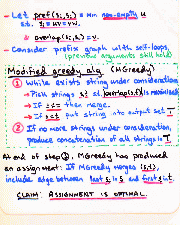 - Let pref(sᵢ, sⱼ) = min non-empty u
s.t. sᵢ = uv = vw.
& overlap(sᵢ, sⱼ) = v.
- Consider prefix graph with self-loops.
(previous arguments still hold)
Modified greedy alg. (MGreedy)
① While exists string under consideration
- Pick strings s, t st. overlap(s,t) is maximised
- If s≠t then merge.
- If s=t put string into output set T
② If no more strings under consideration,
produce concatenation of all strings in T.
At end of step ①, MGreedy has produced
an assignment: If MGreedy merges (s,t),
include edge between last s in s and first in t.
CLAIM: ASSIGNMENT IS OPTIMAL.